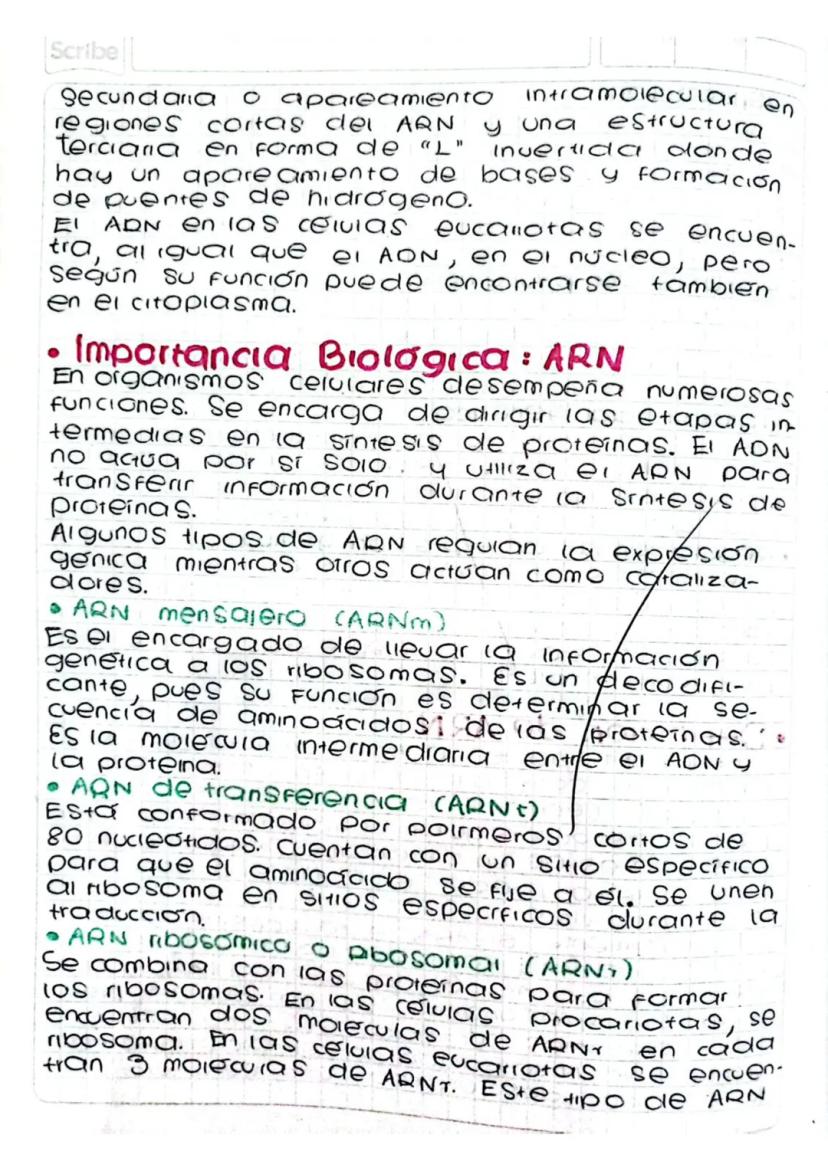 Scribe
secundaria o apareamiento intramolecular en
regiones cortas del ARN y una estructura
terciaria en forma de "L" invertida donde
hay un apareamiento de bases y formación
de puentes de hidrógeno.
El ADN en las células eucariotas se encuen-
tra, al igual que el ADN, en el núcleo, pero
según su función puede encontrarse también
en el citoplasma.
• Importancia Biológica: ARN
En organismos celulares desempeña numerosas
funciones. Se encarga de dirigir las etapas in-
termedias en la síntesis de proteínas. El ADN
no actúa por sí solo y utiliza el ARN para
transferir información durante la síntesis de
proteínas.
Algunos tipos de ARN regulan la expresión
génica mientras otros actúan como cataliza-
dores.
• ARN mensajero (ARNm)
Es el encargado de llevar la información
genética a los ribosomas. Es un decodifi-
cante, pues su función es determinar la se-
cuencia de aminoácidos de las proteínas.
Es la molécula intermediaria entre el ADN y
la proteína.
• ARN de transferencia (ARNt)
Está conformado por polímeros cortos de
80 nucleótidos. Cuentan con un sitio específico
para que el aminoácido se fije a él. Se unen
al ribosoma en sitios específicos durante la
traducción.
• ARN ribosómico o Ribosomal (ARNr)
Se combina con las proteínas para formar
los ribosomas. En las células procariotas, se
encuentran dos moléculas de ARNr en cada
ribosoma. En las células eucariotas se encuen-
tran 3 moléculas de ARNr. Este tipo de ARN